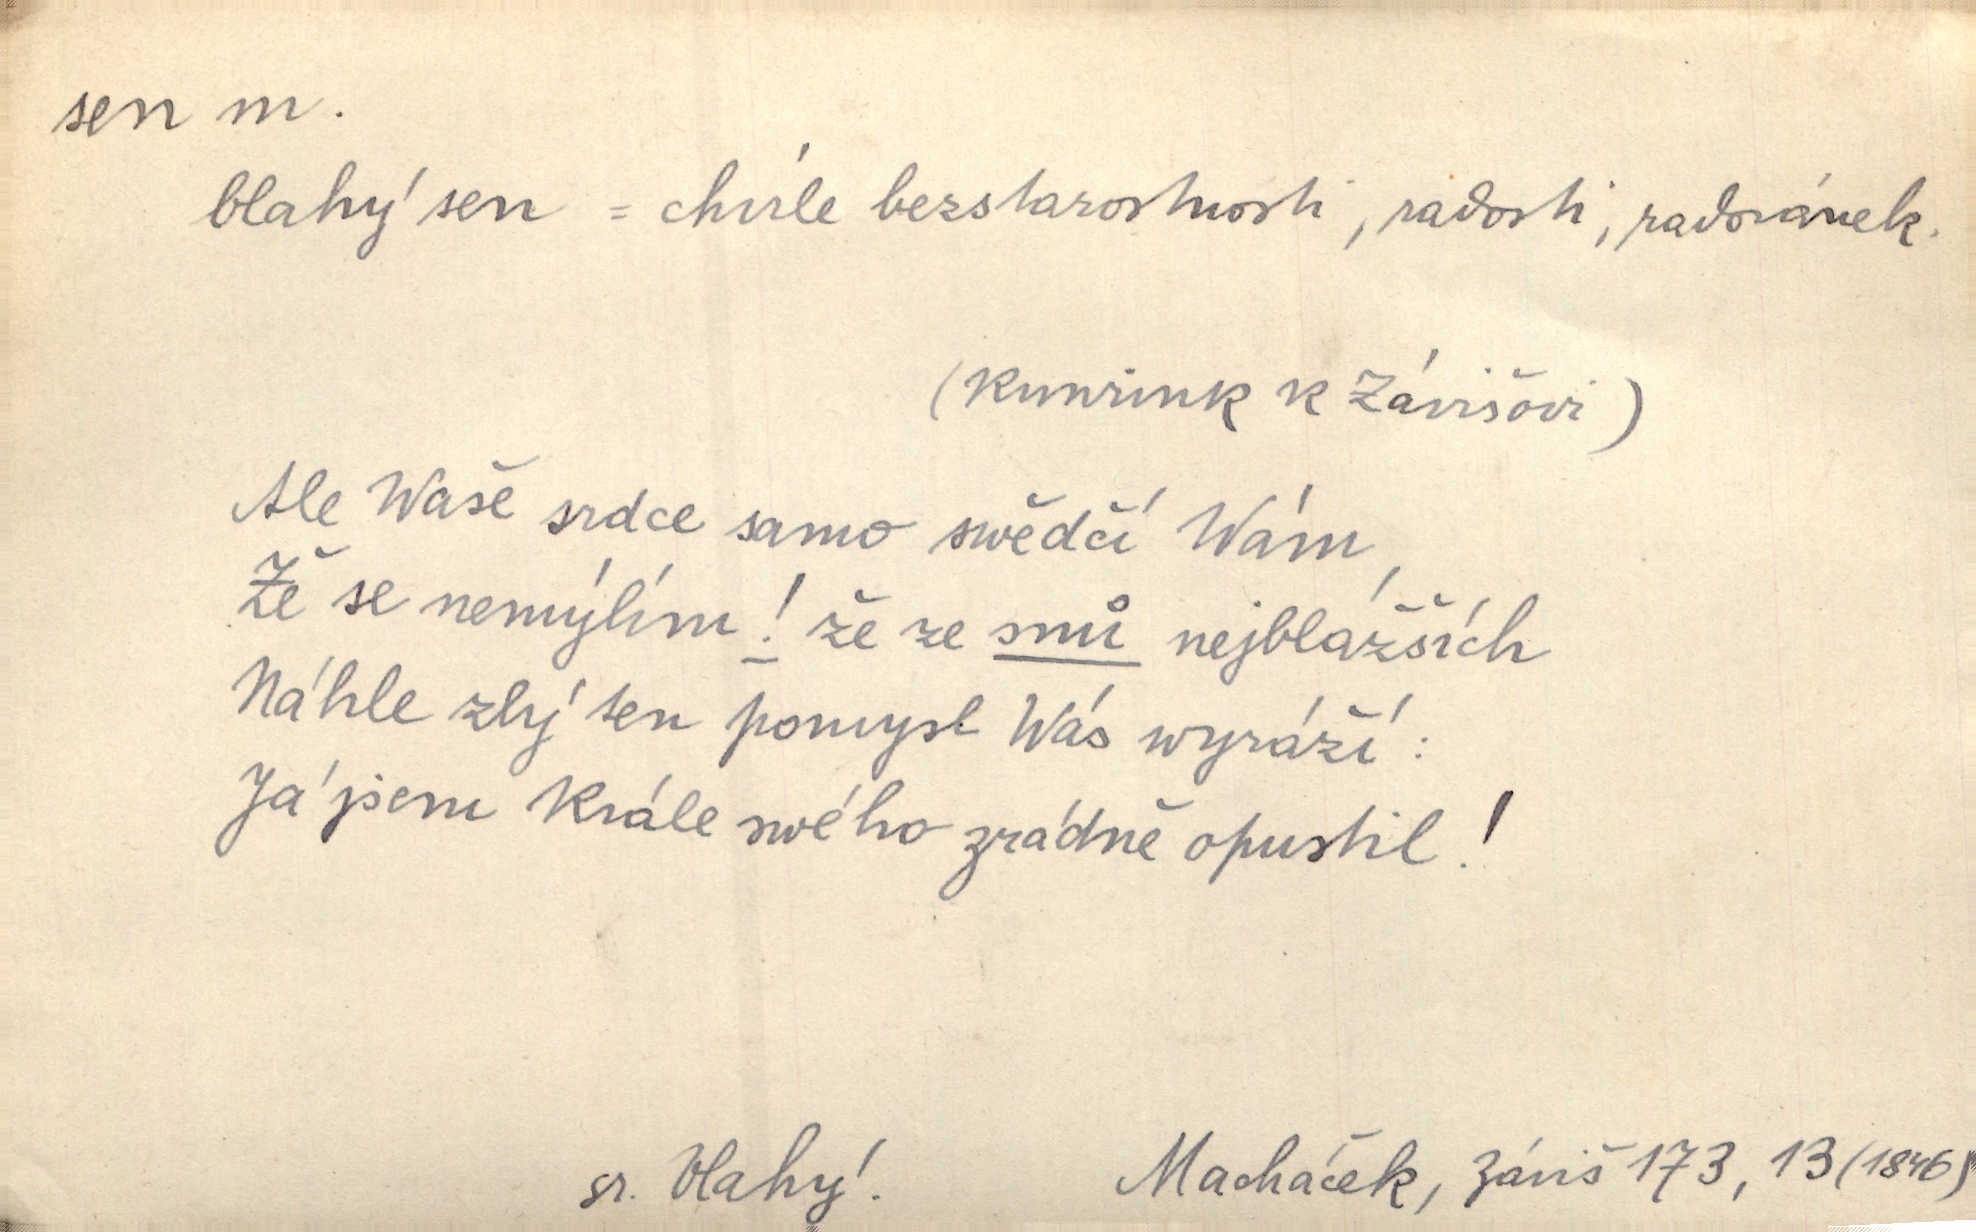 sen m.
blahý sen = chvíle bezstarostnosti, radosti, radovánek.
(Kunrink k Závišovi)
Ale Waše srdce samo swědčí Wám,
Že se nemýlím! že ze snů nejblažších
Náhle zlý sen pomysl Wás wyráží:
Já jsem Krále swého zrádně opustil!
sr. blahý.
Macháček, Záviš 173, 13 (1846)